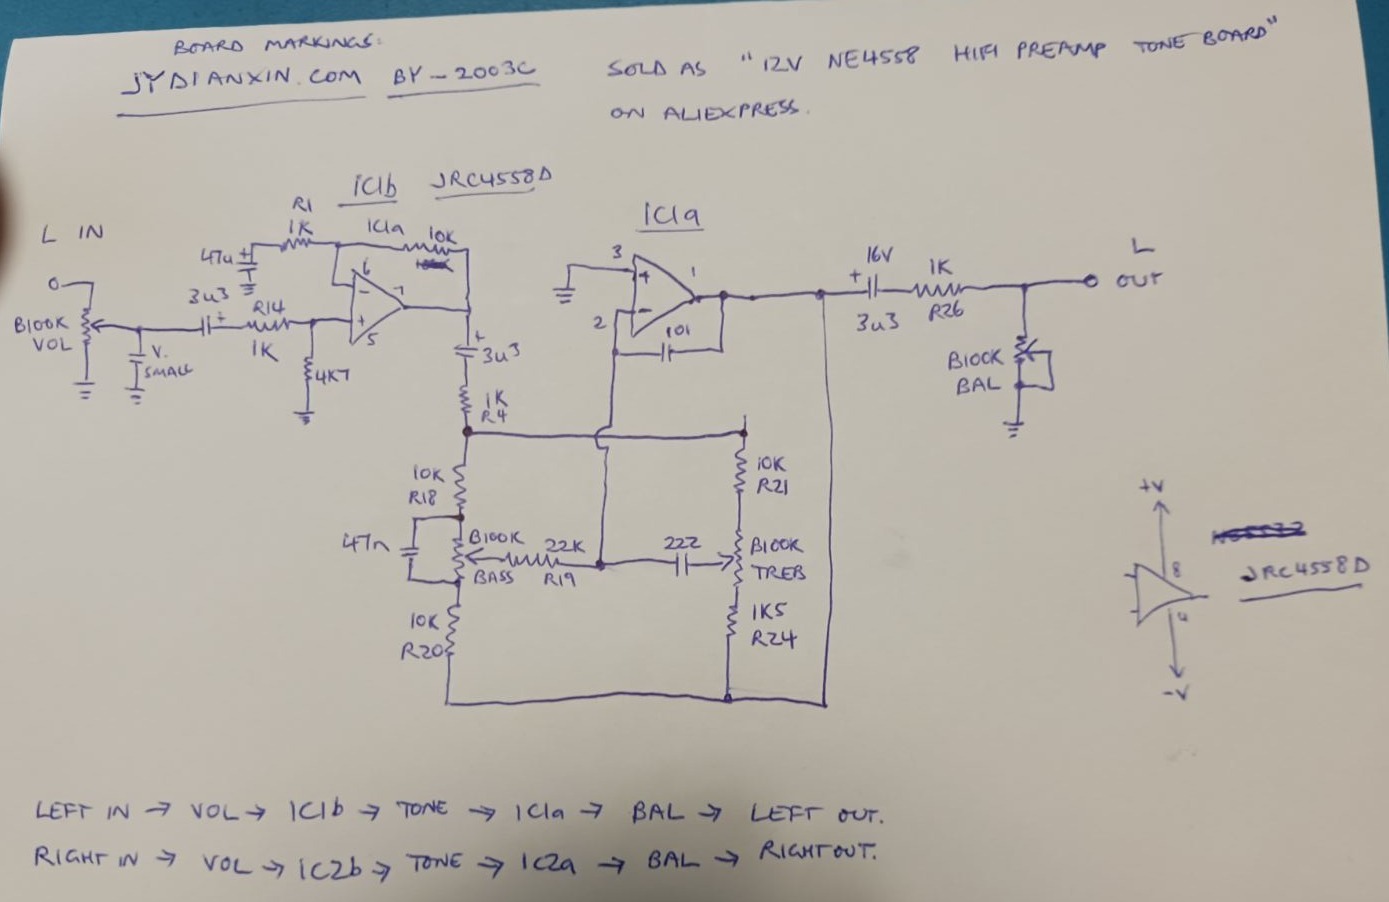 BOARD MARKINGS:
JYDIANXIN.COM BY-2003C
SOLD AS "12V NE4558 HIFI PREAMP TONE BOARD"
ON ALIEXPRESS.
IC1b JRC4558D
L IN
R1
1K
IC1a
10K
47u +
3u3 +
R14
1K
B100K
VOL
V.
SMALL
4K7
6
-
7
+
5
+
3u3
1K
R4
IC1a
3
+
1
-
2
101
16V
+
3u3
1K
R26
L
OUT
B100K
BAL
10K
R18
47n
B100K
BASS
22K
R19
222
10K
R21
B100K
TREB
10K
R20
1K5
R24
+V
8
JRC4558D
4
-V
LEFT IN → VOL → IC1b → TONE → IC1a → BAL → LEFT OUT.
RIGHT IN → VOL → IC2b → TONE → IC2a → BAL → RIGHT OUT.